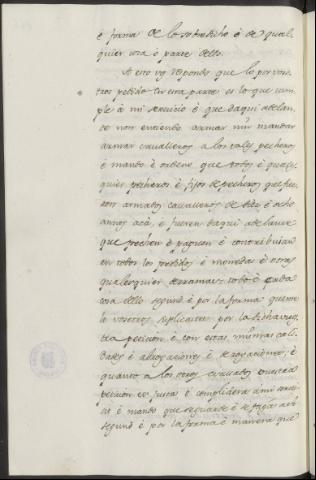 é forma de lo sobredicho ó de qual
quier cosa é parte dello.
A esto vos respondo que lo por vos
otros pedido en esta parte es lo que cum
ple á mi servicio é que daqui adelan
te non entiendo armar nin mandar
armar cavalleros á los tales pecheros
é mando é ordeno que todos é quales
quier pecheros é fijos de pecheros que fue
ron armados cavalleros de diez é ocho
annos acá, é fueren daqui adelante
que pechen é paguen é contribuian
en todos los pedidos é monedas é otras
qualesquier derramas todo é cada
cosa dello segund é por la forma que me
lo vosotros suplicastes por la dicha vues
tra peticion é con estas mismas cali
dades é abrogaciones é derogaciones, é
quanto á los otros escusados vuestra
peticion es justa é complidera á mi servi
cio é mando que se guarde é se faga así
segund é por la forma é manera que